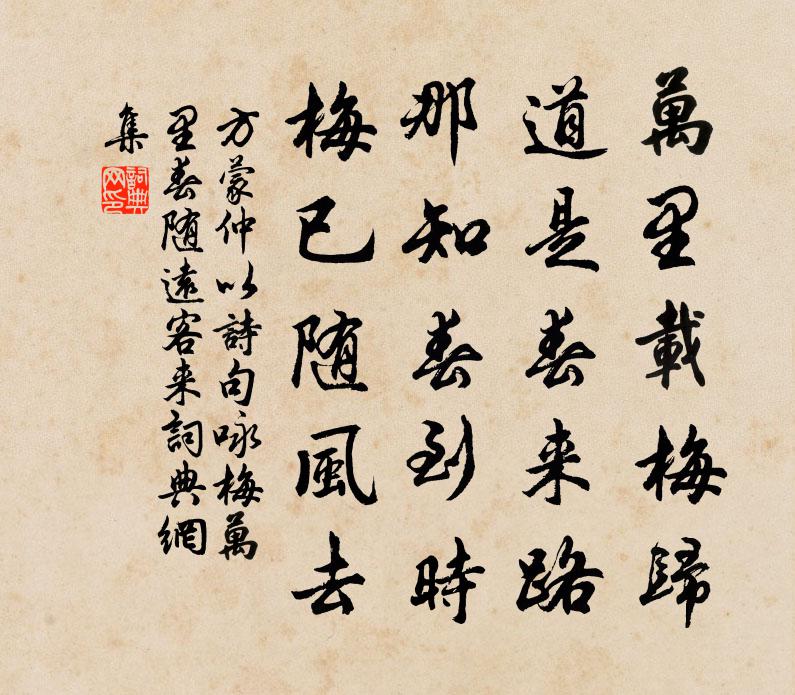 萬里載梅歸
道是春来路
那知春到時
梅已随風去
方蒙仲以詩句咏梅萬
里春随遠客来詞典網
集
詞典
网印